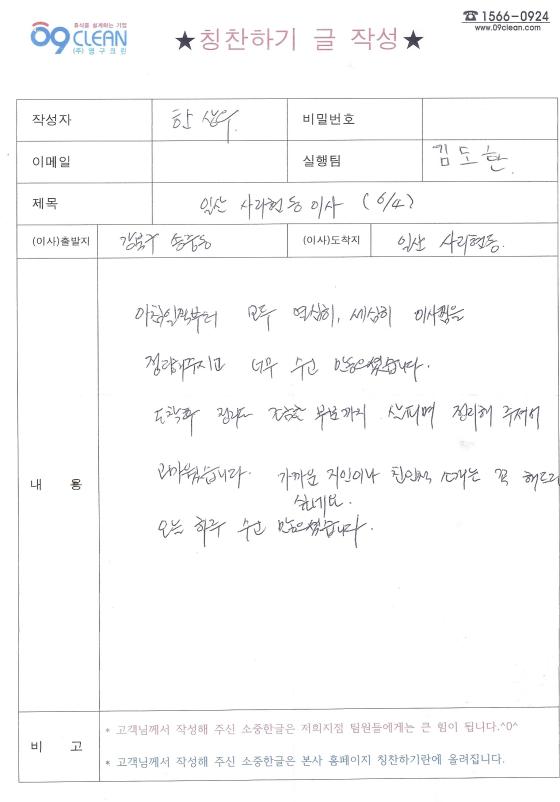 휴식을 설계하는 기업
09 CLEAN
(주)영구크린
★칭찬하기 글 작성★
☎ 1566-0924
www.09clean.com
작성자 한상우 비밀번호
이메일 실행팀 김도환
제목 일산 사리현동 이사 (6/4)
(이사)출발지 강북구 송중동 (이사)도착지 일산 사리현동.
내 용
아침일찍부터 모두 열심히, 세심히 이사짐을
정리해주시고 너무 수고 많으셨습니다.
도착후 정리도 꼼꼼한 부분까지 살피며 정리해 주셔서
고마웠습니다. 가까운 지인이나 친인척 소개는 꼭 해드리
싶네요.
오늘 하루 수고 많으셨습니다.
비 고
* 고객님께서 작성해 주신 소중한글은 저희지점 팀원들에게는 큰 힘이 됩니다.^0^
* 고객님께서 작성해 주신 소중한글은 본사 홈페이지 칭찬하기란에 올려집니다.